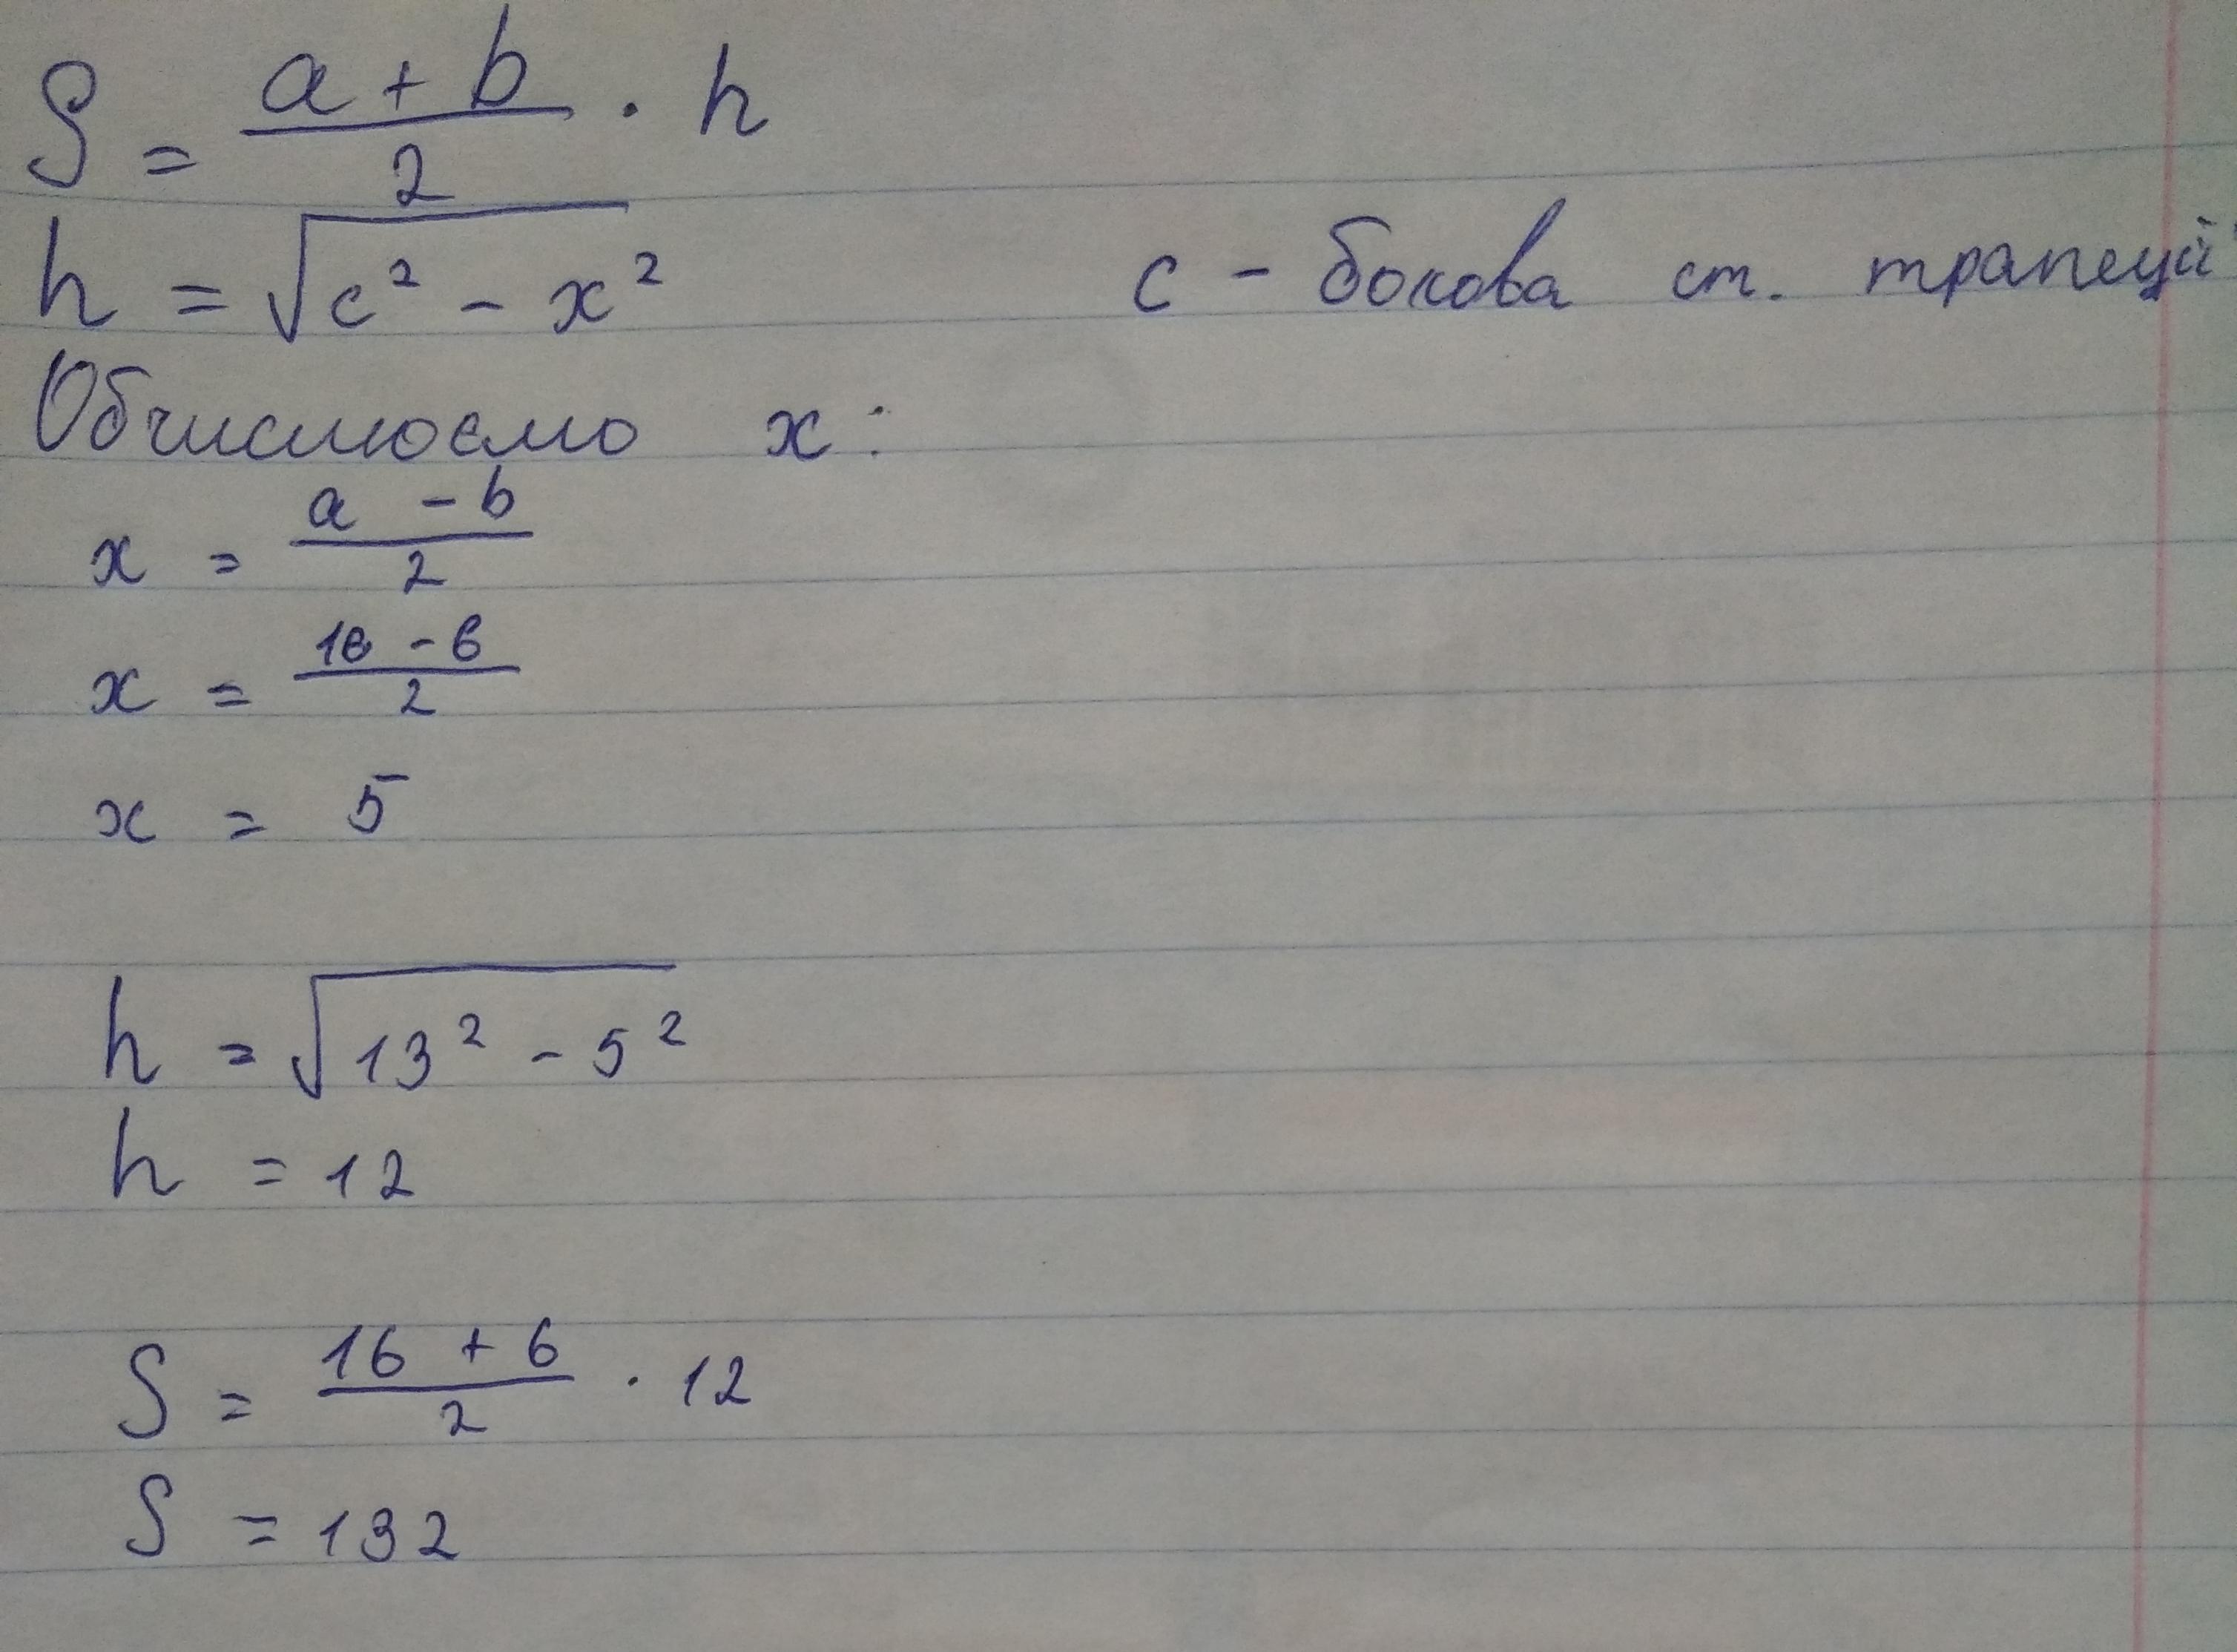 S = (a + b)/2 · h
h = √(c² - x²) c - бокова ст. трапеції
Обчислюємо x:
x = (a - b)/2
x = (16 - 6)/2
x = 5
h = √(13² - 5²)
h = 12
S = (16 + 6)/2 · 12
S = 132